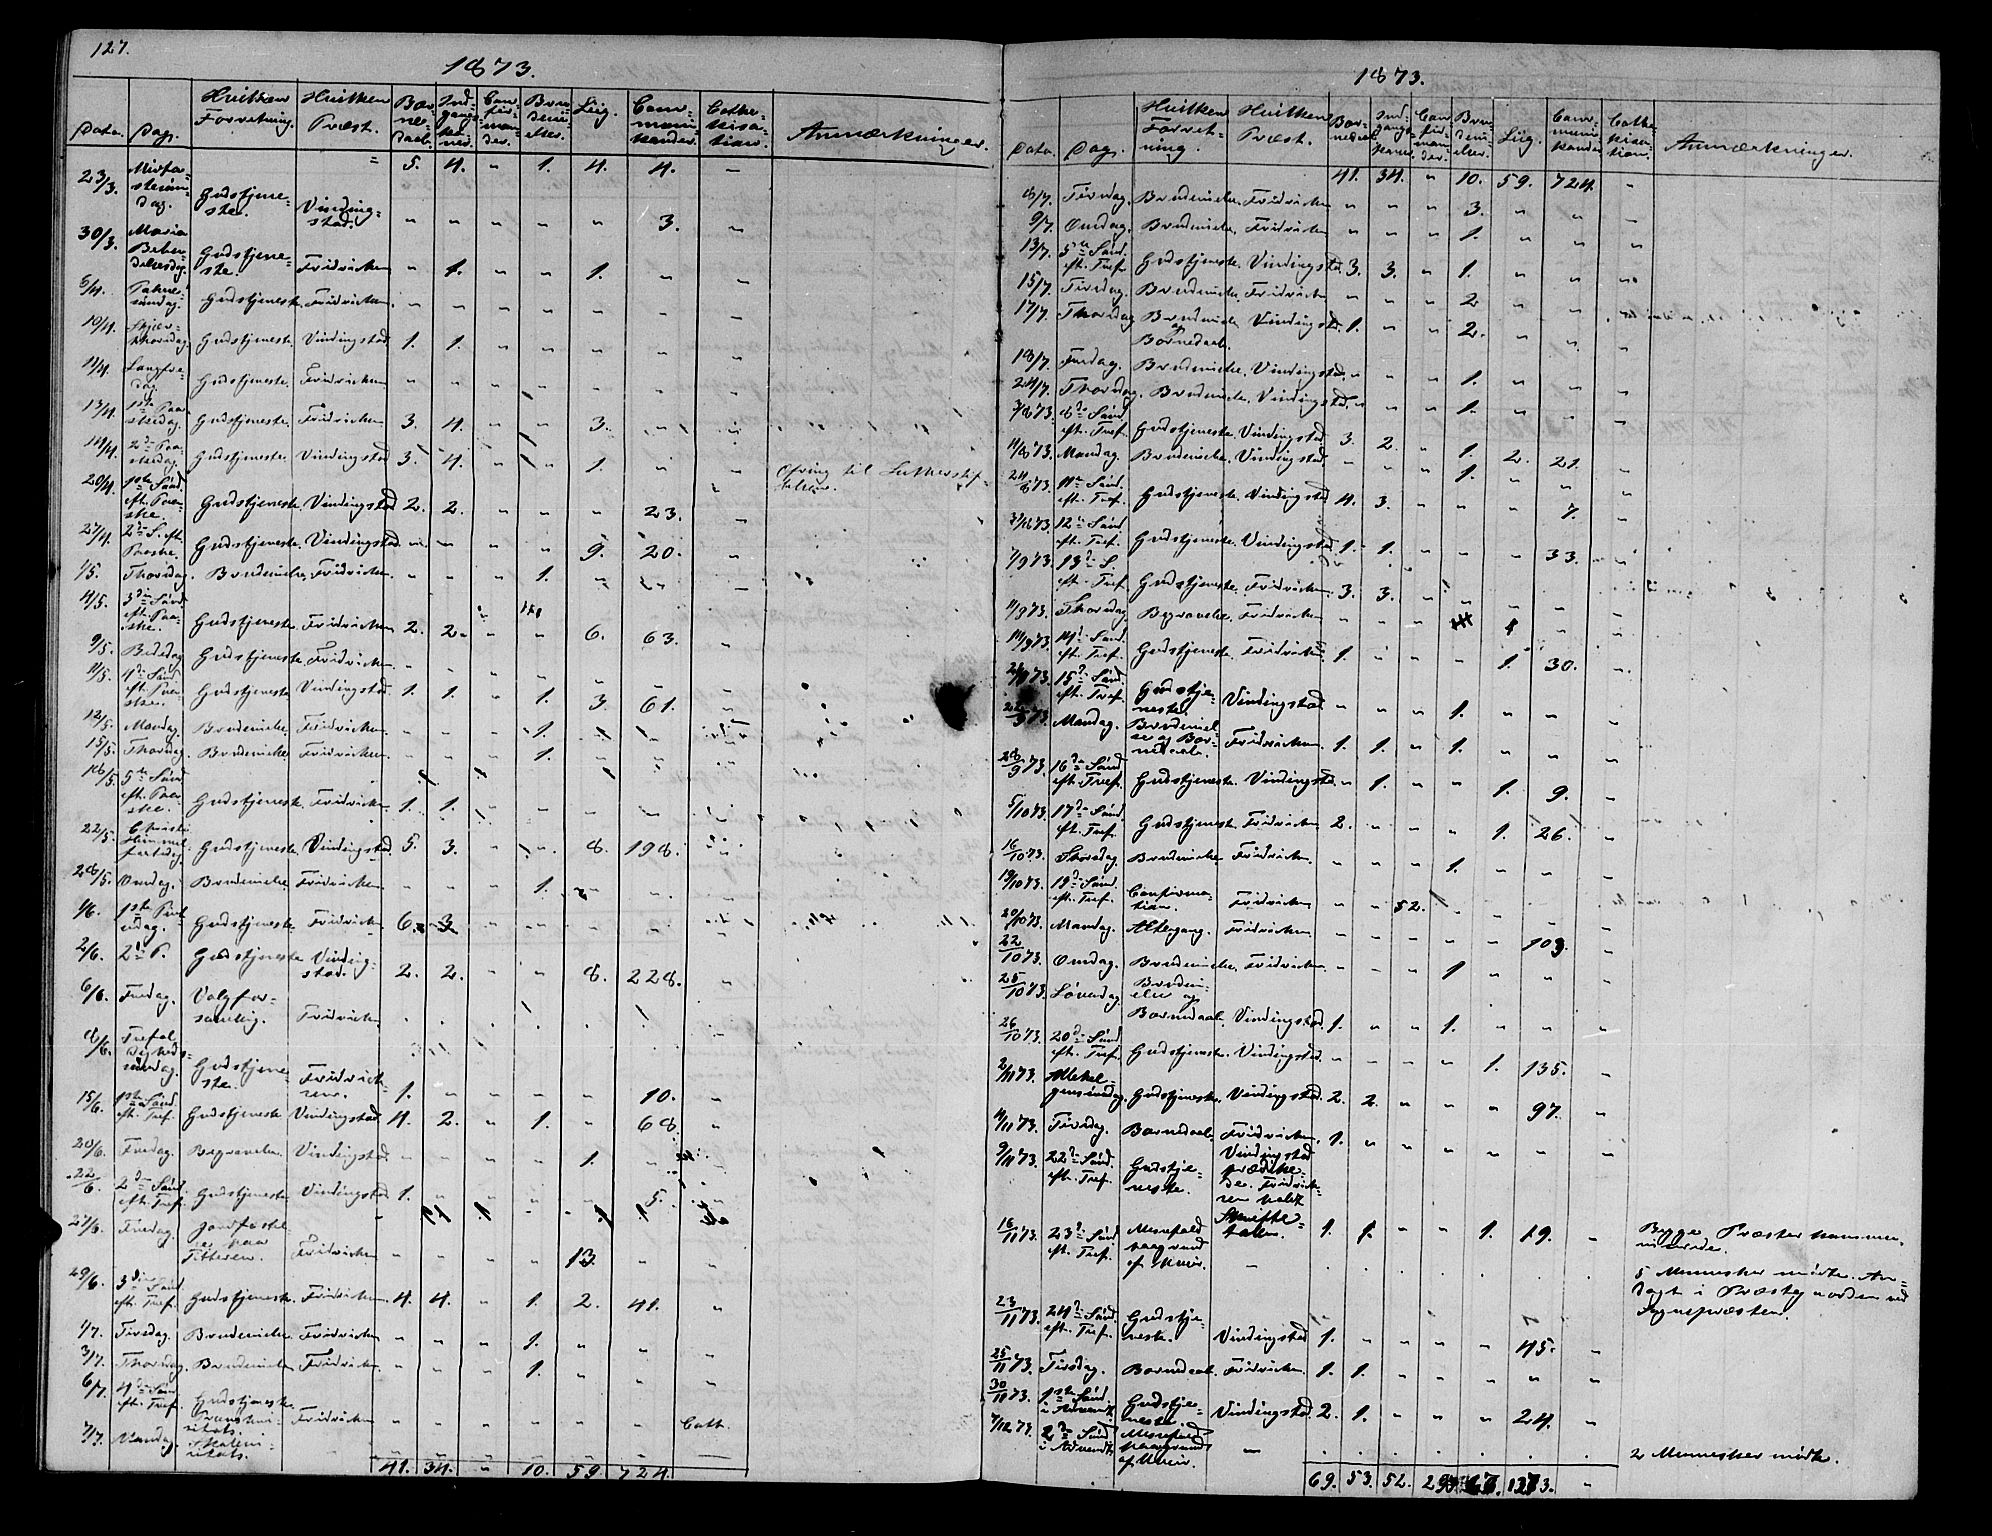 127.
1873.
Dato. Dag. Hvilken Forretning. Hvilken Præst. Bar- ne- daab. Ind- gangs- ko- ner. Con- fir- man- der. Bru- deni- elser. Liig. Com- muni- kander. Cathe- kisa- tion. Anmærkninger.
5. 4. " 1. 4. 4. "
23/3. Midfa- stesøn- dag. Gudstjene- ste. Vinding- stad. " " " " " 3. "
30/3. Maria Bebu- delsesdag. Gudstjene- ste. Fridrichsen " 1. " " 1. " "
6/4. Palme- søndag. Gudstjeneste. Fridrichsen. " " " " " " "
10/4. Skjær- thorsdag. Gudstjeneste. Vindingstad 1. 1. " " " " "
11/4. Langfre- dag. Gudstjeneste. Fridrichsen " " " " " "
13/4. 1ste Paa- skedag. Gudstjeneste. Fridrichsen 3. 4. " " 3. " "
14/4. 2den Paa- skedag. Gudstjeneste. Vindingstad 3. 4. " " 1. " " Ofring til Lutherstif- telsen.
20/4. 1ste Sønd. eft. Paa- ske. Gudstjeneste. Vindingstad 2. 2. " " " 23. "
27/4. 2den S. eft. Paaske. Gudstjeneste. Vindingstad. " " " " 9. 20. "
1/5. Thorsdag. Brudevielse. Fridrichsen. " " " 1. " " "
4/5. 3die Sønd. eft. Paa- ske. Gudstjeneste. Fridrichsen 2. 2. " " 6. 63. "
9/5. Bededag Gudstjeneste. Fridrichsen. " " " " " "
11/5. 4de Sønd. eft. Paa- ske. Gudstjeneste. Vindingstad. 1. 1. " 1. 3. 61. "
12/5. Mandag. Brudevielse. Fridrichsen " " " 1. " " "
15/5. Thorsdag. Brudevielse. Fridrichsen. " " " 1. " " "
18/5. 5te Sønd. eft. Paa- ske. Gudstjeneste. Fridrichsen 1. 1. " " " " "
22/5. Christi Himmel- fartsdag. Gudstjeneste. Vindingstad. 5. 3. " " 8. 198. "
28/5. Onsdag. Brudevielse. Fridrichsen " " " 1. " " "
1/6. 1ste Pint- sedag. Gudstjeneste. Fridrichsen 6. 3. " " " " "
2/6. 2den P. Gudstjeneste Vinding- stad. 2. 2. " " 8. 228. "
6/6. Fredag. Valgfor- samling. Fridrichsen . . . . . . .
8/6. Trefol- digheds- søndag. Gudstjene- ste. Fridrich- sen. 1. " " " " 10. "
15/6. 1ste Sønd. eft. Tref. Gudstjeneste Vindingstad 4. 2. " 1. " 68. "
20/6. Fredag. Begravelse. Vindingstad. " " " " 1. "
22/6. 2den Sønd. eft. Tref. Gudstjeneste. Vindingstad 1. " " " " 5.
27/6. Fredag. Jordfæstel- se paa Titteren. Fridrichsen " " " " 13. " "
29/6. 3die Sønd. eft. Tref. Gudstjeneste. Fridrichsen. 4. 4. " 1. 2. 41. "
1/7. Tirsdag. Brudevielse. Fridrichsen " " " 1. " " "
3/7. Thorsdag. Brudevielse Fridrichsen. " " " 1. " " "
6/7. 4de Sønd. eft. Tref. Gudstjeneste Fridrichsen " " " " " " Cath.
7/7. Mandag.
41. 34. " 10. 59. 724.
1873.
Dato. Dag. Hvilken Forret- ning. Hvilken Præst. Bar- nedaab. Ind- gangs- koner. Con- fir- man- der. Bru- devi- elser. Liig. Com- muni- kander. Cathe- kisa- tion. Anmærkninger.
41. 34. " 10. 59. 724. "
8/7. Tirsdag. Brudevielse. Fridrichsen " " " 3. " " "
9/7. Onsdag. Brudevielse. Fridrichsen " " " 1. " " "
13/7. 5te Sønd. eft. Tref. Gudstjeneste. Vindingstad. 3. 3. " 1. " " "
15/7. Tirsdag. Brudevielse. Fridrichsen " " " 2. " " "
17/7. Thorsdag Brudevielse og Barnedaab. Vindingstad. 1. " " 2. " " "
18/7. Fredag. Brudevielse. Vindingstad. " " " 1. " " "
24/7. Thorsdag. Brudevielse. Vindingstad. " " " 1. " " "
3/8 73. 8de Sønd. eft. Tref. Gudstjeneste. Vindingstad. 3. 2. " 1. 2. 21. "
11/8 73. Mandag. Brudevielse. Vindingstad " " " 1. " " "
24/8 73. 11te Sønd. eft. Tref. Gudstjeneste. Vindingstad 4. 3. " " " 7. "
31/8 73. 12te Sønd. eft. Tref. Gudstjeneste. Vindingstad 1. 1. " " " 33. "
7/9 73. 13de S. eft. Tref. Gudstjeneste. Fridrichsen 3. 3. " " " "
11/9 73. Thorsdag. Begravelse. Fridrichsen " " " 1 " "
14/9 73. 14de Sønd. eft. Tref. Gudstjeneste. Fridrichsen 1. " " " 1. 30. "
21/9 73. 15de Sønd. eft. Tref. Gudstje- neste. Vindingstad " " " 1. " " "
22/9 73. Mandag. Brudeviel- se og Bar- nedaab. Fridrichsen. 1. 1. " 1. " " "
28/9 73. 16de Sønd. eft. Tref. Gudstjeneste. Vindingstad " 1. " " 1. 9. "
5/10 73. 17de Sønd. eft. Tref. Gudstjeneste Fridrichsen 2. " " " 1. 26. "
16/10 73. Thorsdag. Brudevielse Fridrichsen. " " " 1. " " "
19/10 73. 19de Sønd. eft. Tref. Confirma- tion. Fridrichsen " " 52. " " " "
20/10 73. Mandag. Altergang. Fridrichsen. " " " " " 103. "
22/10 73. Onsdag. Brudevielse. Fridrichsen. " " " 1 " " "
25/10 73. Løverdag. Brudevi- else og Barnedaab. Vindingstad. 1. " " 1. " " "
26/10 73. 20de Sønd. eft. Tref. Gudstjeneste. Vindingstad. " " " " 1. 135. "
2/11 73. Allehel- gensøndag. Gudstjeneste. Vindingstad. 2. 2. " " " 97. "
4/11 73. Tirsdag. Barnedaab. Fridrichsen. 1. " " " " " "
9/11 73. 22de Sønd. eft. Tref. Gudstje- neste. Vindingstad prædike- de. Fridrich- sen holdt Skrifte- talen. 1. 1. " " 1. 19. " Begge Præster kommu- nicerede.
16/11 73. 23de Sønd. eft. Tref. Messefald paagrund af Uveir. – . . . . . . . 5 Mennesker mødte. An- dagt i Præstegaarden ved Sognepræsten.
23/11 73. 24de Sønd. eft. Tref. Gudstje- neste. Vindingstad 1. " " " " 45. "
25/11 73. Tirsdag. Barnedaab. Fridrichsen. 1. 1. " " " " "
30/11 73. 1ste Sønd. i Advent. Gudstje- neste. Vindingstad. 2. 1. " " " 24. "
7/12 73. 2den Sønd. i Advendt. Messefald paagrund af Uveir. – . . . . . . . 2 Mennesker mødte.
69. 53. 52. 29